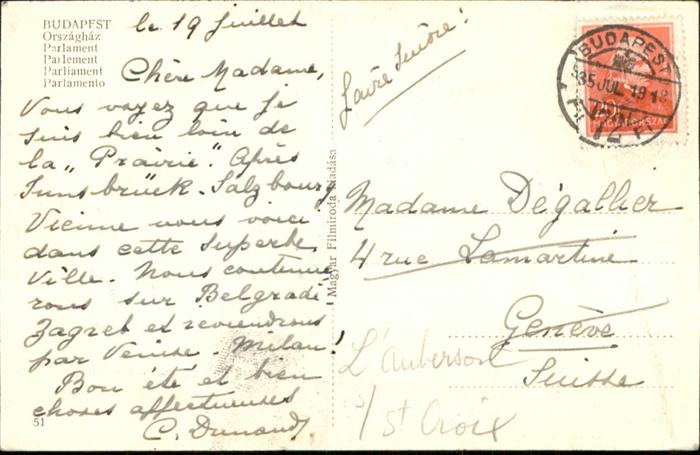 BUDAPEST
Országház
Parlament
Parlement
Parliament
Parlamento
le 19 Juillet
Chère Madame,
Vous voyez que je
suis bien loin de
la „Prairie". Après
Innsbrück. Salzbourg
Vienne nous voici
dans cette superbe
ville. Nous continue
rons sur Belgrade
Zagreb et reviendrons
par Venise. Milan!
Bon été et bien
choses affectueuses
C. Dunand
51
Magyar Filmiroda kiadása
BUDAPEST
35 JUL 19 18
72
MAGYARORSZÁG
Madame Dégallier
4 rue Lamartine
Genève
Suisse
L'Auberson
s/ St Croix